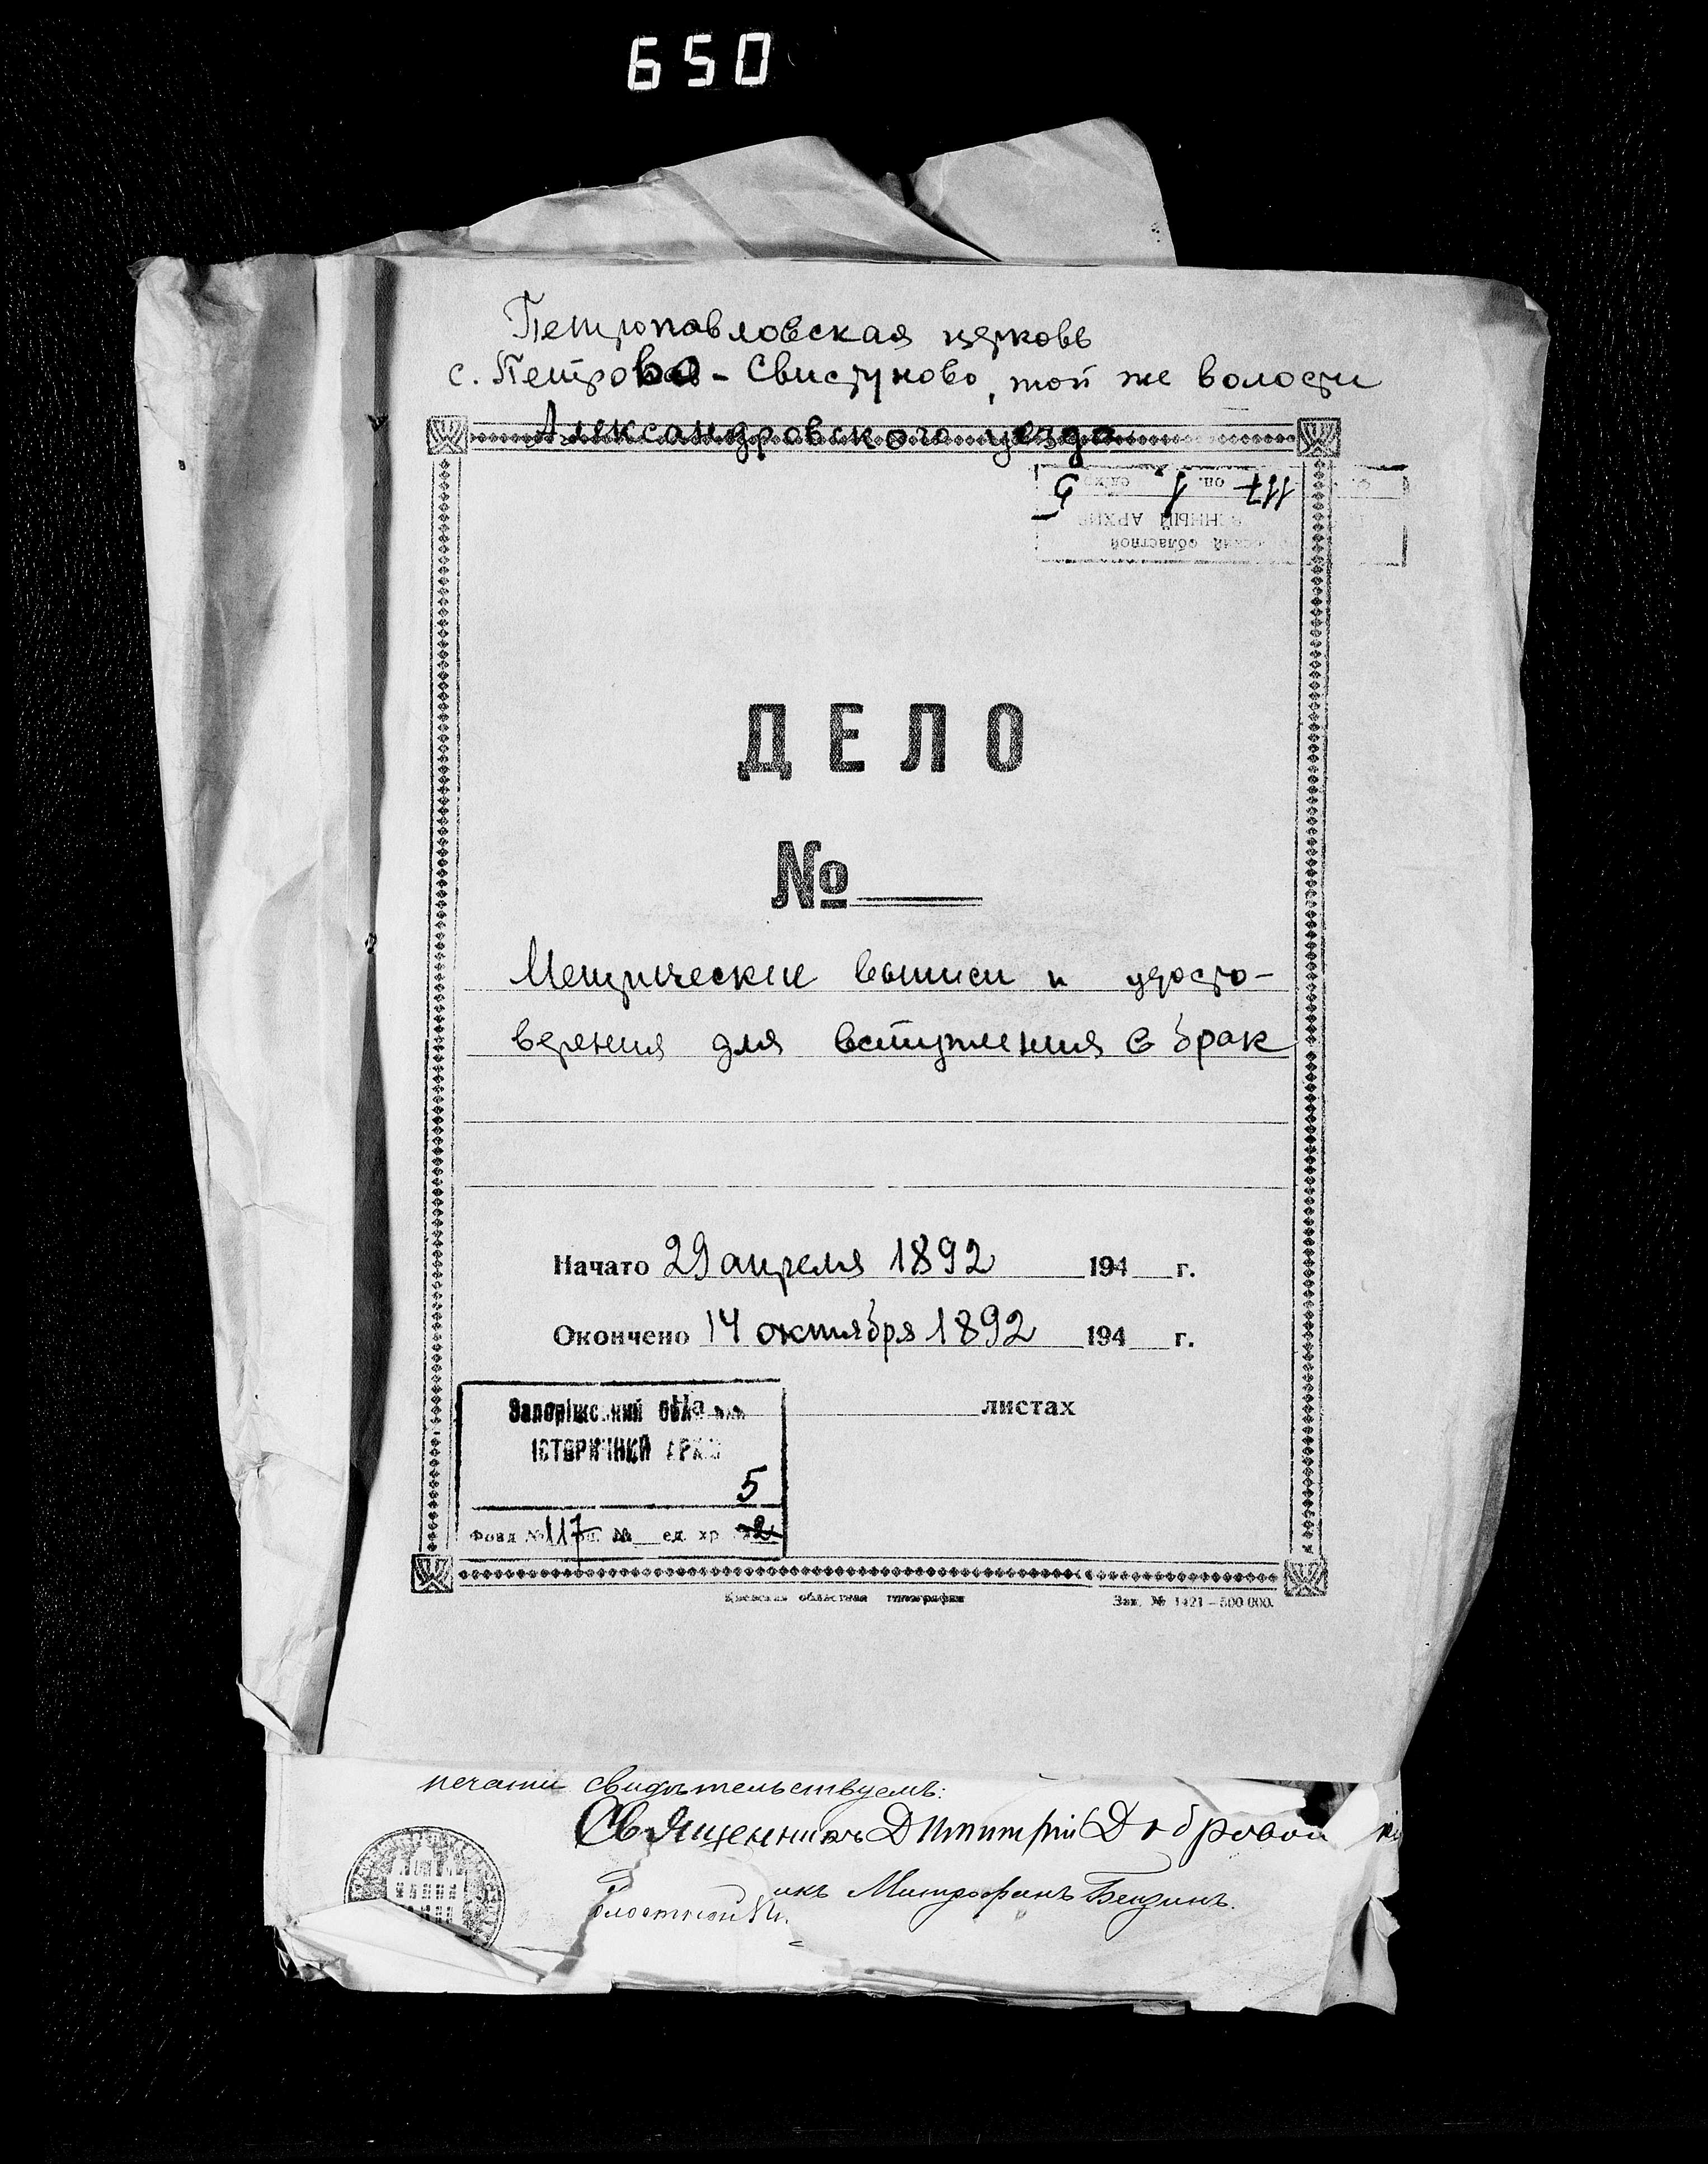 650
Петропавловская церковь
с. Петрово-Свистуново, той же волости
Александровского уезда
117 оп. 1 5
АРХИВ
областной
ДЕЛО
№
Метрические выписи и удосто-
верения для вступления в брак
Начато 29 апреля 1892 194 г.
Окончено 14 октября 1892 194 г.
На листах
Запорізький
ІСТОРИЧНИЙ АРХІВ
5
Фонд № 117 оп. № ед. хр. 2
Киевская областная типография Зак. № 1421 — 500 000.
печати свидѣтельствуемъ:
Священникъ Димитрій
икъ Митрофанъ